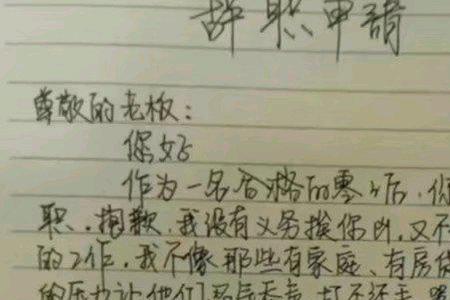 辞职申请
尊敬的老板:
您好
作为一名合格的零零后,你
职。抱歉,我没有义务挨你凶,又不
的工作,我不像那些有家庭、有房贷
的压力让他们
打不还手